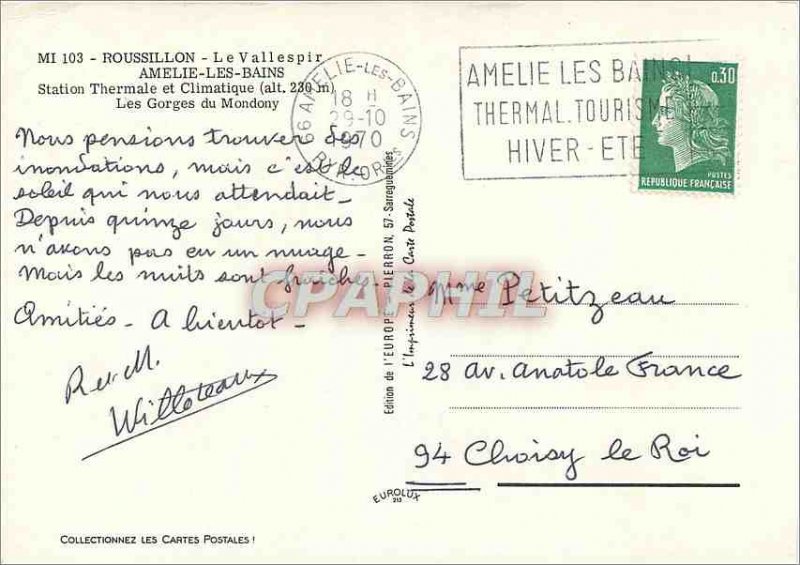 MI 103 - ROUSSILLON - Le Vallespir
AMELIE-LES-BAINS
Station Thermale et Climatique (alt. 230 m)
Les Gorges du Mondony
Nous pensions trouver des
inondations, mais c'est le
soleil qui nous attendait -
Depuis quinze jours, nous
n'avons pas eu un nuage -
Mais les nuits sont fraîches -
Amitiés - A bientôt -
R et M.
Willoteaux
COLLECTIONNEZ LES CARTES POSTALES !
66 AMELIE-LES-BAINS
18 H
29-10
1970
PYR. ORles
AMELIE LES BAINS
THERMAL. TOURISME
HIVER - ETE
0,30
POSTES
REPUBLIQUE FRANÇAISE
Edition de l'EUROPE - PIERRON, 57-Sarreguemines
L'Imprimeur de la Carte Postale
CPAPHIL
Mme Petitzeau
28 av. Anatole France
94 Choisy le Roi
EUROLUX